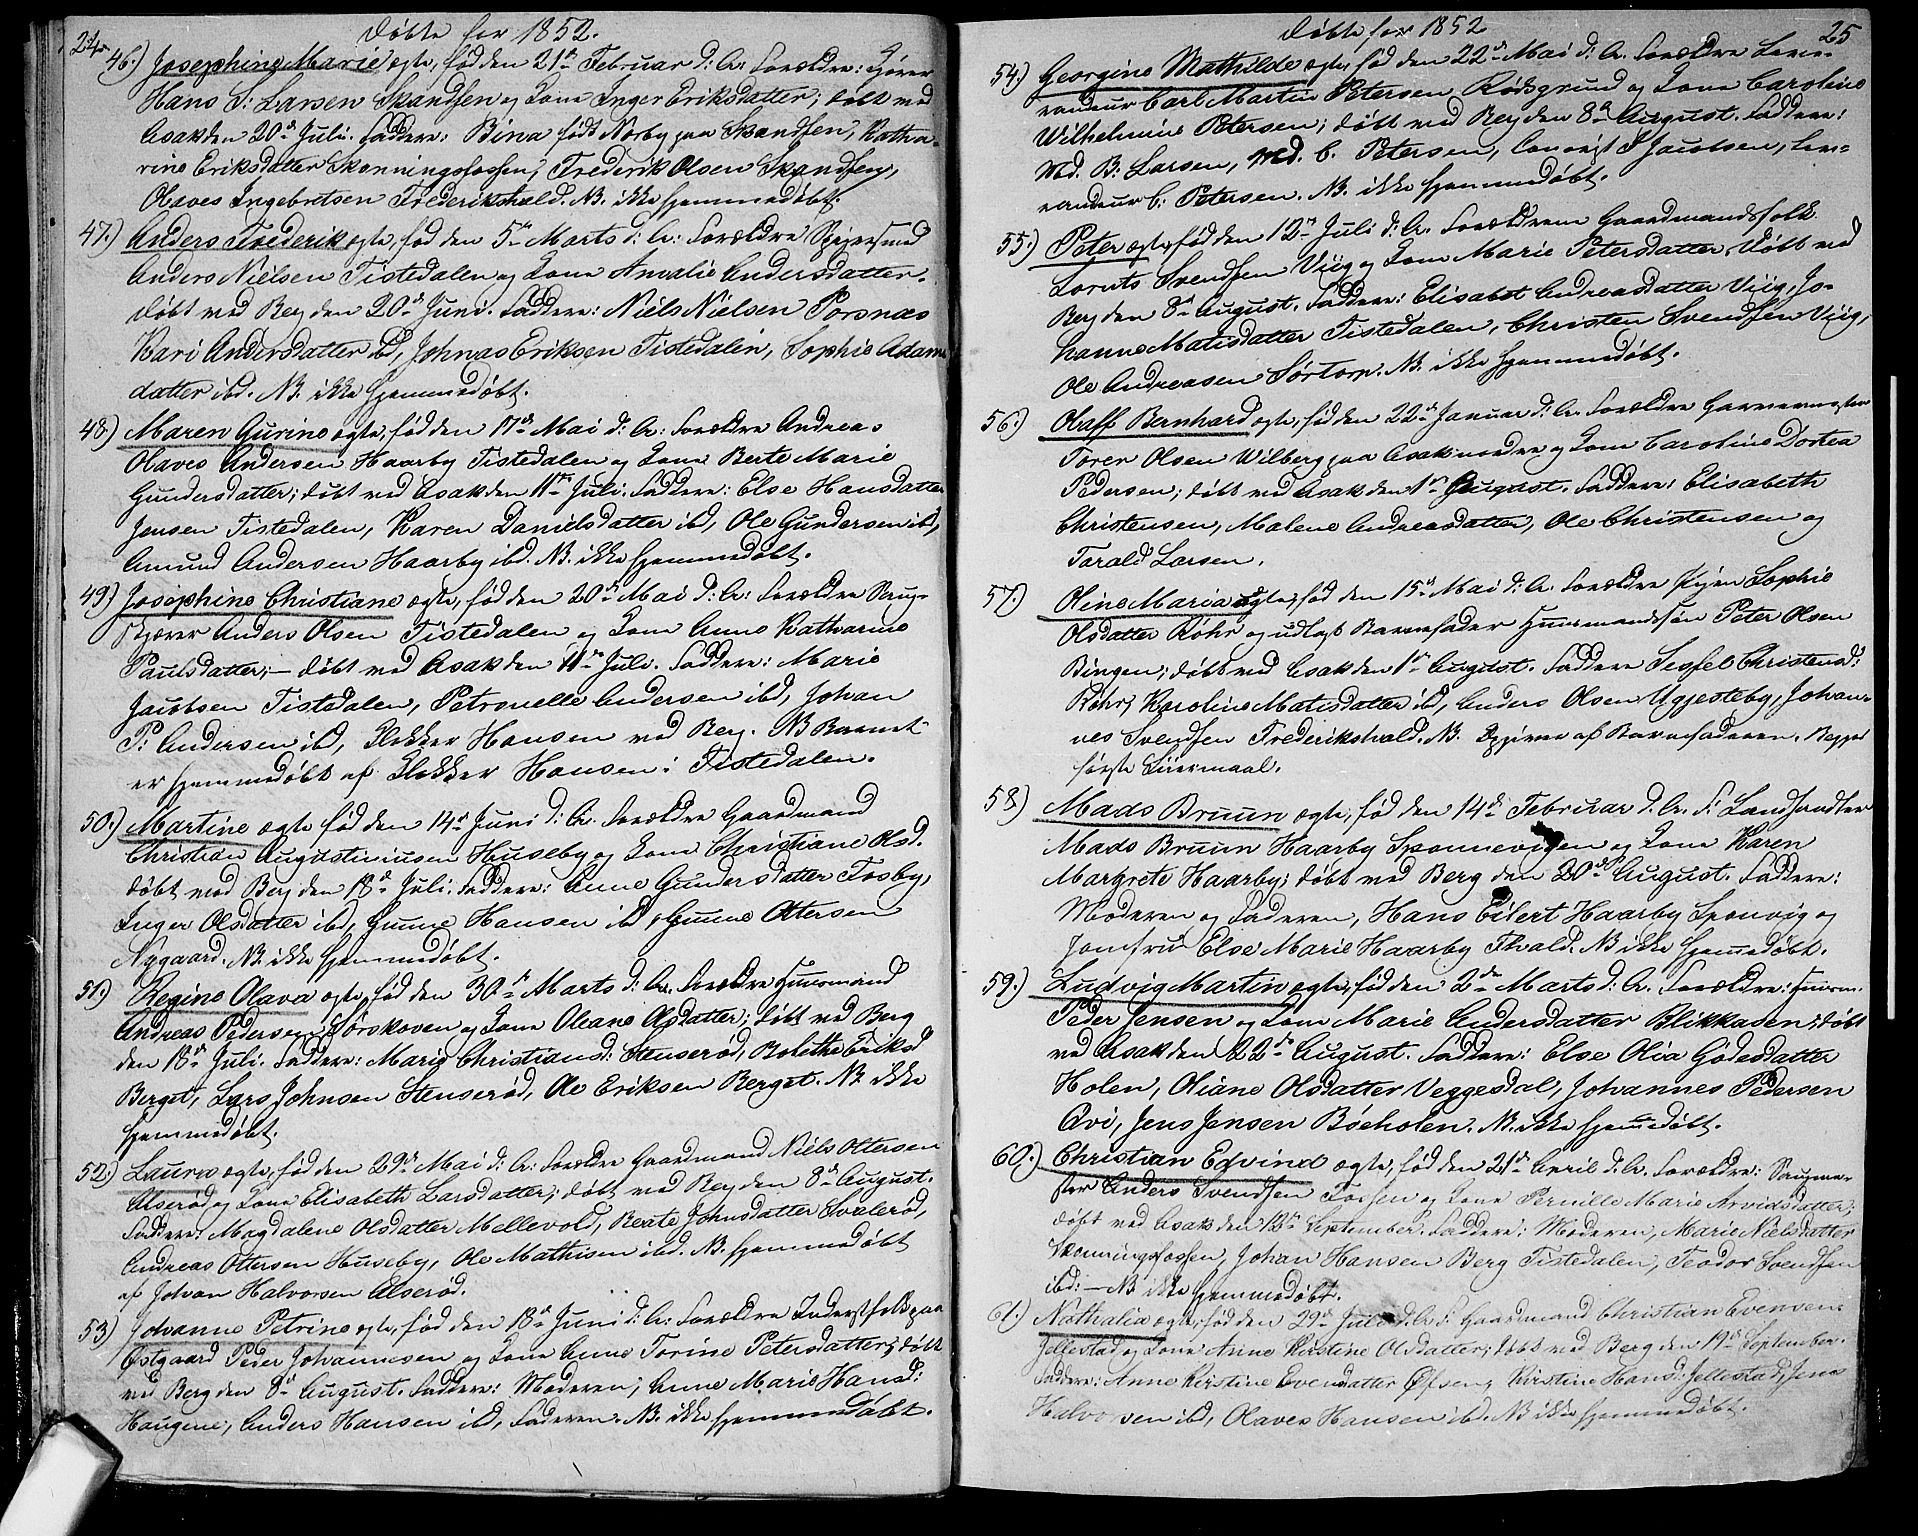 24. Døbte for 1852.
46.) Josephine Marie ægte, fød den 21de Februar d: A: Forældre:
Hans S: Larsen Skandsen og Kone Inger Eriksdatter; døbt ved
Asak den 20de Juli. Faddere: Bina født Norby paa Skandsen, Katha-
rine Eriksdatter Skonningsfossen, Frederik Olsen Skandsen,
Olaves Ingebretsen Frederikshald. NB. ikke hjemmedøbt.
47.) Anders Frederik ægte, fød den 5te Marts d: A: Forældre Spigersmed
Anders Nielsen Tistedalen og Kone Amalie Andersdatter.
døbt ved Berg den 20de Juni. Faddere: Niels Nielsen Porsnæs
Kari Andersdatter ibd, Johnas Eriksen Tistedalen, Sophie Adams
datter ibd. NB. ikke hjemmedøbt.
48.) Maren Gurine ægte, fød den 17de Mai d: A: Forældre Andreas
Olaves Andersen Haarby Tistedalen og Kone Berte Marie
Gundersdatter; døbt ved Asak den 11te Juli. Faddere: Else Hansdatter
Jensen Tistedalen, Karen Danielsdatter ibd, Ole Gundersen ibd,
Amund Andersen Haarby ibd. NB. ikke hjemmedøbt.
49.) Josephine Christiane ægte, fød den 20de Mai d: A: Forældre Saug-
skjærer Anders Olsen Tistedalen og Kone Anne Katharine
Paulsdatter; — døbt ved Asak den 11te Juli. Faddere: Marie
Jacobsen Tistedalen, Petronelle Andersen ibd, Johan
P: Andersen ibd, Klokker Hansen ved Berg. NB Barnet
er hjemmedøbt af Klokker Hansen i Tistedalen.
50.) Martine ægte fød den 14de Juni d: A. Forældre Gaardmand
Christian Augustiniusen Huseby og Kone Christiane Olsd.
døbt ved Berg den 18de Juli. Faddere: Anne Gundersdatter Torsby,
Inger Olsdatter ibd, Gunne Hansen ibd, Gunne Ottersen
Nygaard. NB. ikke hjemmedøbt.
51.) Regine Olava ægte, fød den 30te Marts d: A. Forældre Huusmand
Andreas Pedersen Sørskoven og Kone Oleane Olsdatter; døbt ved Berg
den 18de Juli. Faddere: Marie Christiansd: Stenserød, Bolethe Eriksd
Berget, Lars Johnsen Stenserød, Ole Eriksen Berget. NB. ikke
hjemmedøbt.
52.) Laura ægte, fød den 29de Mai d: A: Forældre Gaardmand Niels Ottersen
Alserød og Kone Elisabeth Larsdatter; døbt ved Berg den 8de August.
Faddere: Magdalene Olsdatter Mellevold, Beate Johnsdatter Svalerød,
Andreas Ottersen Huseby, Ole Mathisen ibd. NB. hjemmedøbt
af Johan Halvorsen Alserød.
53) Johanne Petrine ægte, fød den 18de Juni d: A. Forældre Inderstfolk paa
Østgaard Peder Johannesen og Kone Anne Torine Petersdatter; døbt
ved Berg den 8de August. Faddere: Moderen, Anne Marie Hansd:
Haugene, Anders Hansen ibd, Faderen. NB. ikke hjemmedøbt.
Døbte for 1852 25
54.) Georgine Mathilde ægte, fød den 22de Mai d: A. Forældre Leve-
randeur Carl Martin Petersen Rødsgrund og Kone Caroline
Wilhelmine Petersen; døbt ved Berg den 8de August. Faddere:
Mad. B. Larsen, Mad. C. Petersen, Jacobsen, Leve-
randeur C. Petersen. NB. ikke hjemmedøbt.
55.) Peter ægte, fød den 12te Juli d: A. Forældrene Gaardmandsfolk
Lorents Svendsen Viig og Kone Marie Petersdatter. Døbt ved
Berg den 8de August. Faddere: Elisabet Andreasdatter Viig, Jo-
hanne Matisdatter Tistedalen, Christen Svendsen Viig,
Ole Andreasen Sørtorp. NB. ikke hjemmedøbt.
56.) Olaff Bernhard ægte, fød den 22de Januar d: A. Forældre Garvermester
Torer Olsen Wilberg paa Asak nordre og Kone Caroline Dortea
Pedersen; døbt ved Asak den 1ste August. Faddere: Elisabeth
Christensen, Malene Andreasdatter, Ole Christensen og
Tarald Larsen.
57.) Oline Maria uægte, fød den 15de Mai d: A. Forældre Pigen Sophie
Olsdatter Røhr og udlagt Barnefader Huusmandssøn Peter Olsen
Bingen; døbt ved Asak den 1ste August. Faddere Sessel Christensd:
Røhr, Karoline Matisdatter ibd, Anders Olsen Uggjesteby, Johan-
nes Svendsen Frederikshald. NB. Opgiven af Barnefaderen. Begges
første Leiermaal.
58.) Mads Bruun ægte, fød den 14de Februar d. A. F: Landhandler
Mads Bruun Haarby Sponnevigen og Kone Karen
Margrete Haarby; døbt ved Berg den 20de August. Faddere:
Moderen og Faderen, Hans Eilert Haarby Sponvig og
Jomfru Else Marie Haarby Fhald. NB ikke hjemmedøbt.
59.) Ludvig Martin ægte, fød den 2den Marts d: A. Forældre: Huusm.
Peder Jensen og Kone Marie Andersdatter Blikkasen; døbt
ved Asak den 22de August. Faddere: Else Olia Gødesdatter
Holen, Oliane Olsdatter Veggesdal, Johannes Pedersen
Qvi, Jens Jensen Bøeholen. NB. ikke hjemmedøbt.
60.) Christian Edvind ægte, fød den 21de April d. A. Forældre: Saugme-
ster Anders Svendsen Fossen og Kone Pernille Marie Arvidsdatter;
døbt ved Asak den 12te September. Faddere: Moderen, Marie Nielsdatter
Skonningsfossen, Johan Hansen Berg Tistedalen, Teodor Svendsen
ibd: — NB ikke hjemmedøbt.
61.) Nathalia ægte, fød den 29de Juli d: A. F. Gaardmand Christian Evensen
Jellestad og Kone Anne Kirstine Olsdatter; døbt ved Berg den 19de September.
Faddere: Anne Kirstine Evensdatter Øfsen, Kirstine Hansd. Jellestad, Jens
Halvorsen ibd, Olaves Hansen ibd. NB ikke hjemmedøbt.